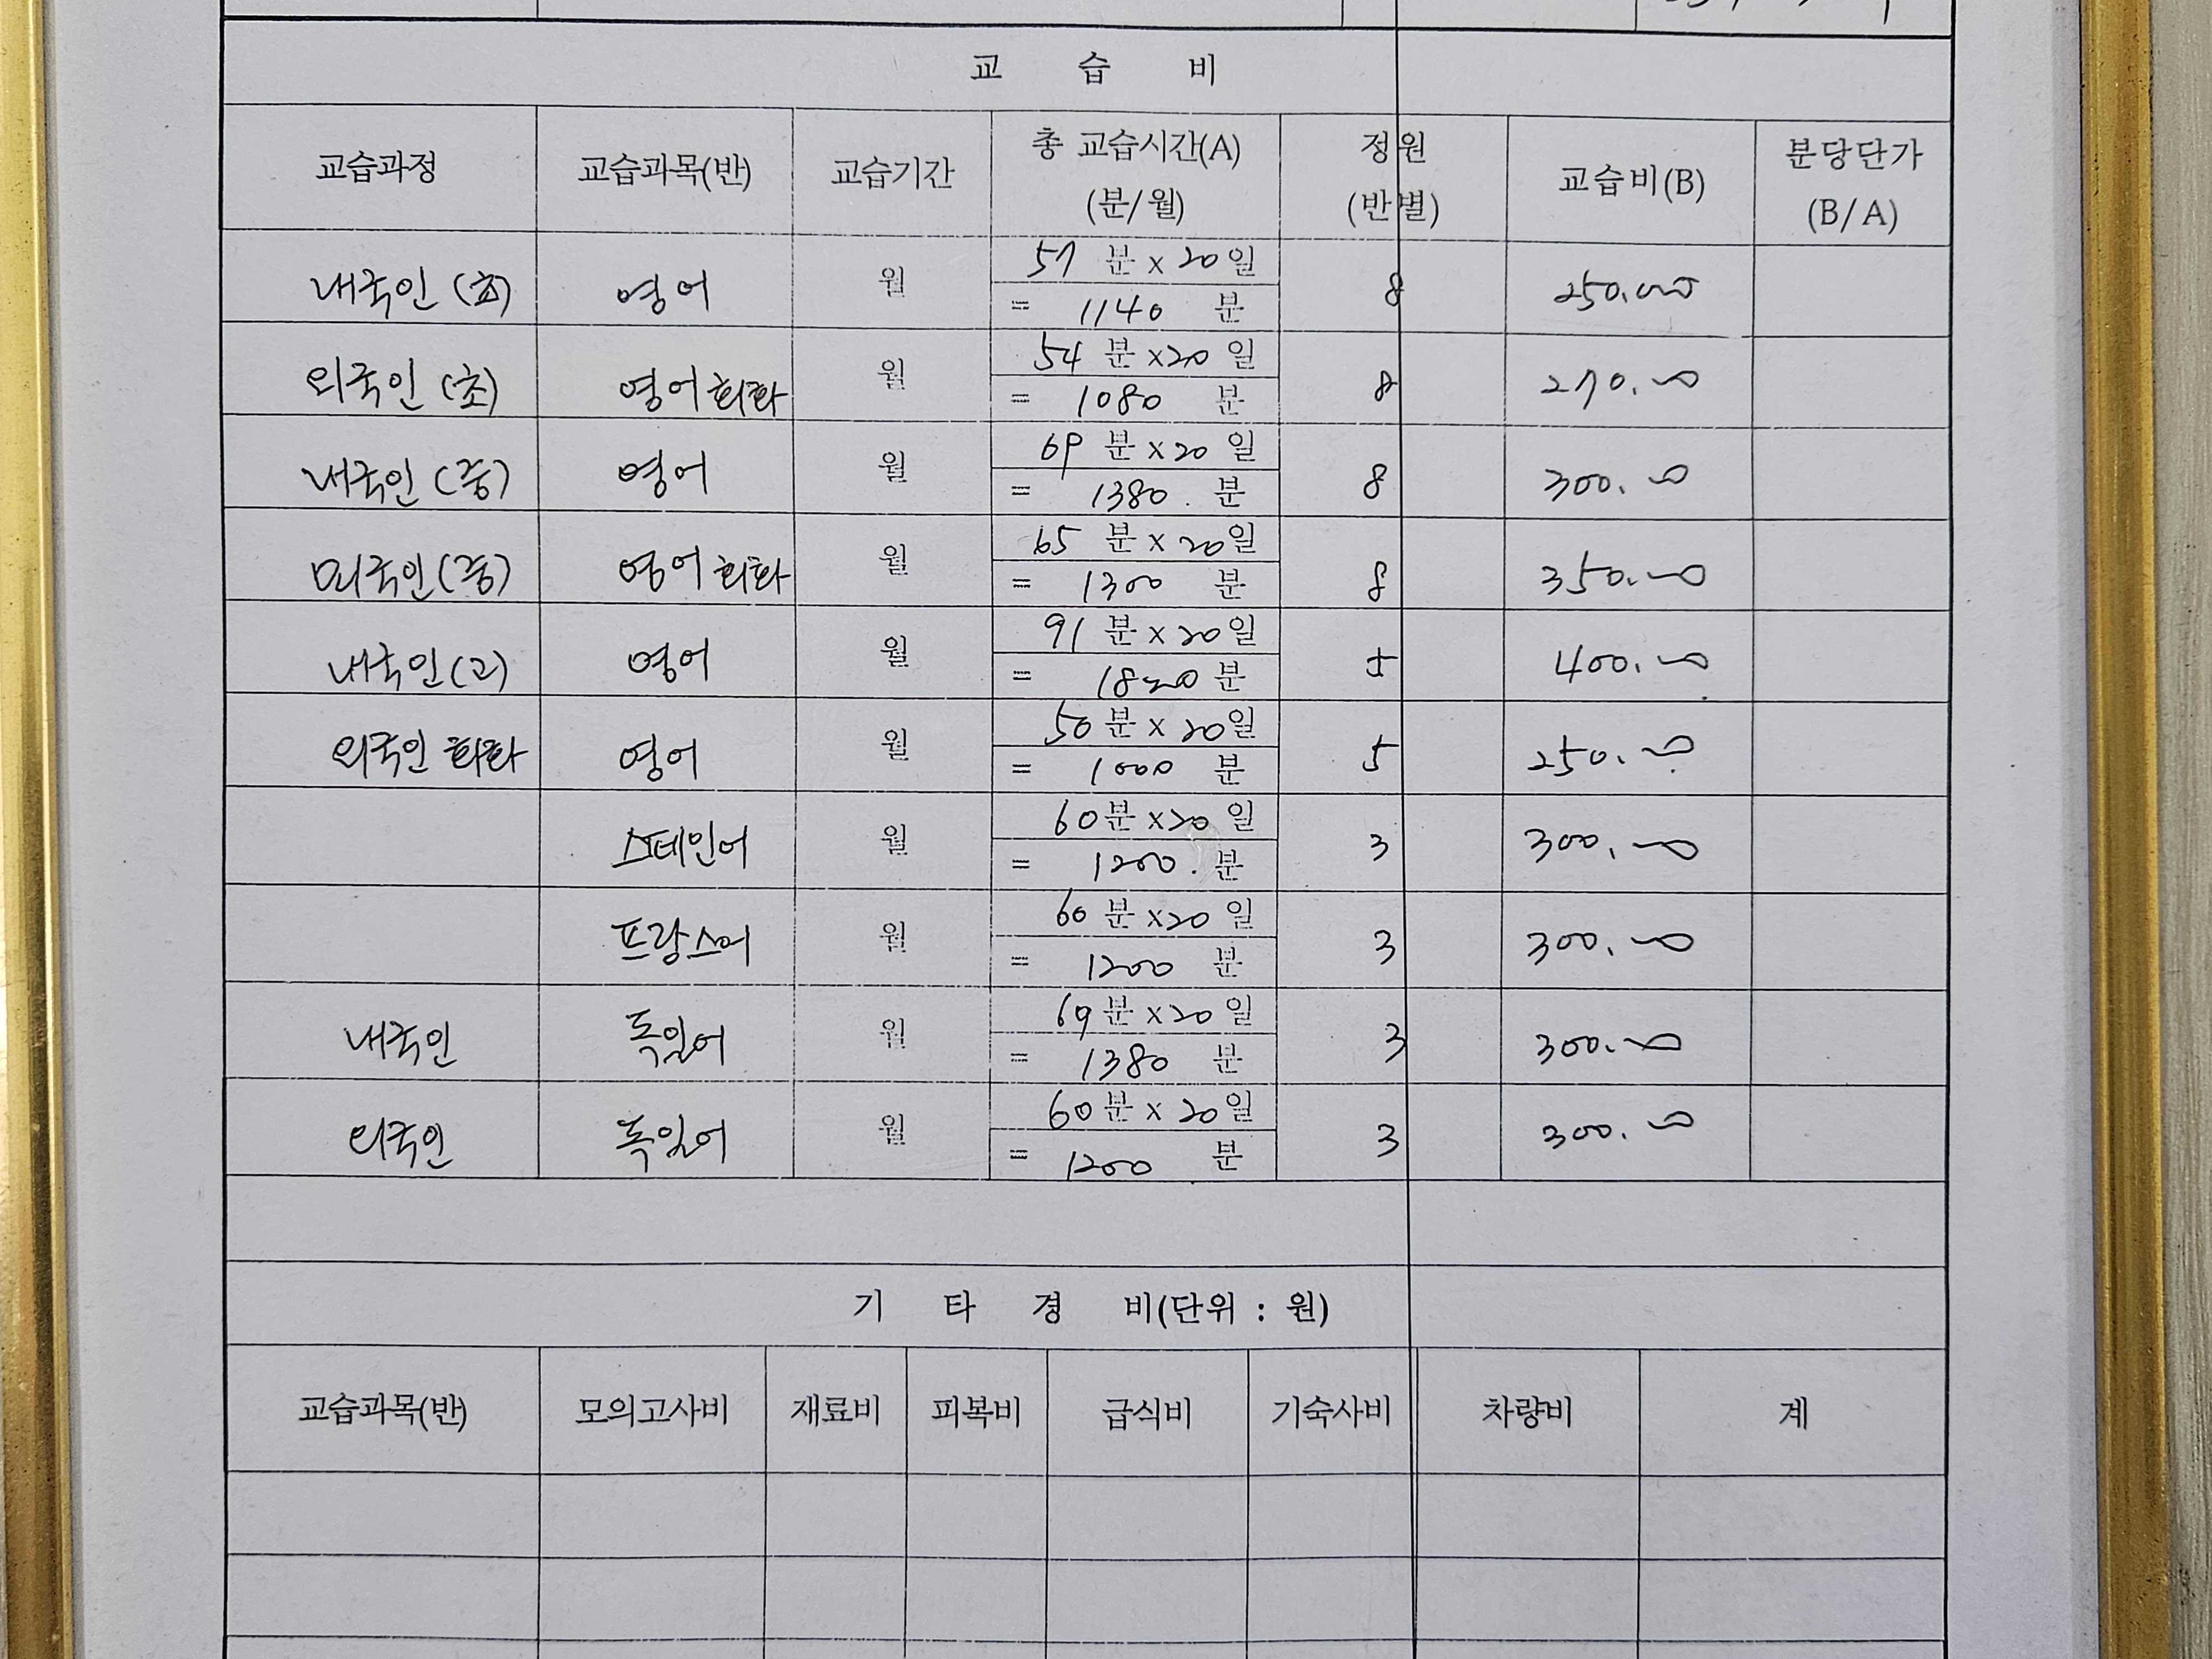 교 습 비
교습과정 교습과목(반) 교습기간 총 교습시간(A) (분/월) 정원 (반별) 교습비(B) 분당단가 (B/A)
내국인 (초) 영어 월 57 분 x 20 일 8 250.000
= 1140 분
외국인 (초) 영어회화 월 54 분 x 20 일 8 270.000
= 1080 분
내국인 (중) 영어 월 69 분 x 20 일 8 300.000
= 1380 분
외국인 (중) 영어회화 월 65 분 x 20 일 8 350.000
= 1300 분
내국인 (고) 영어 월 91 분 x 20 일 5 400.000
= 1820 분
외국인 회화 영어 월 50 분 x 20 일 5 250.000
= 1000 분
스페인어 월 60 분 x 20 일 3 300.000
= 1200 분
프랑스어 월 60 분 x 20 일 3 300.000
= 1200 분
내국인 독일어 월 69 분 x 20 일 3 300.000
= 1380 분
외국인 독일어 월 60 분 x 20 일 3 300.000
= 1200 분
기 타 경 비(단위 : 원)
교습과목(반) 모의고사비 재료비 피복비 급식비 기숙사비 차량비 계